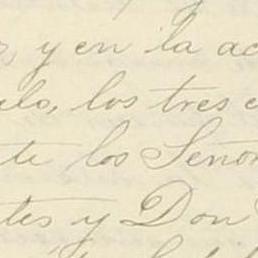 , y en la ac
lo, los tres e
te los Señor
tes y Don